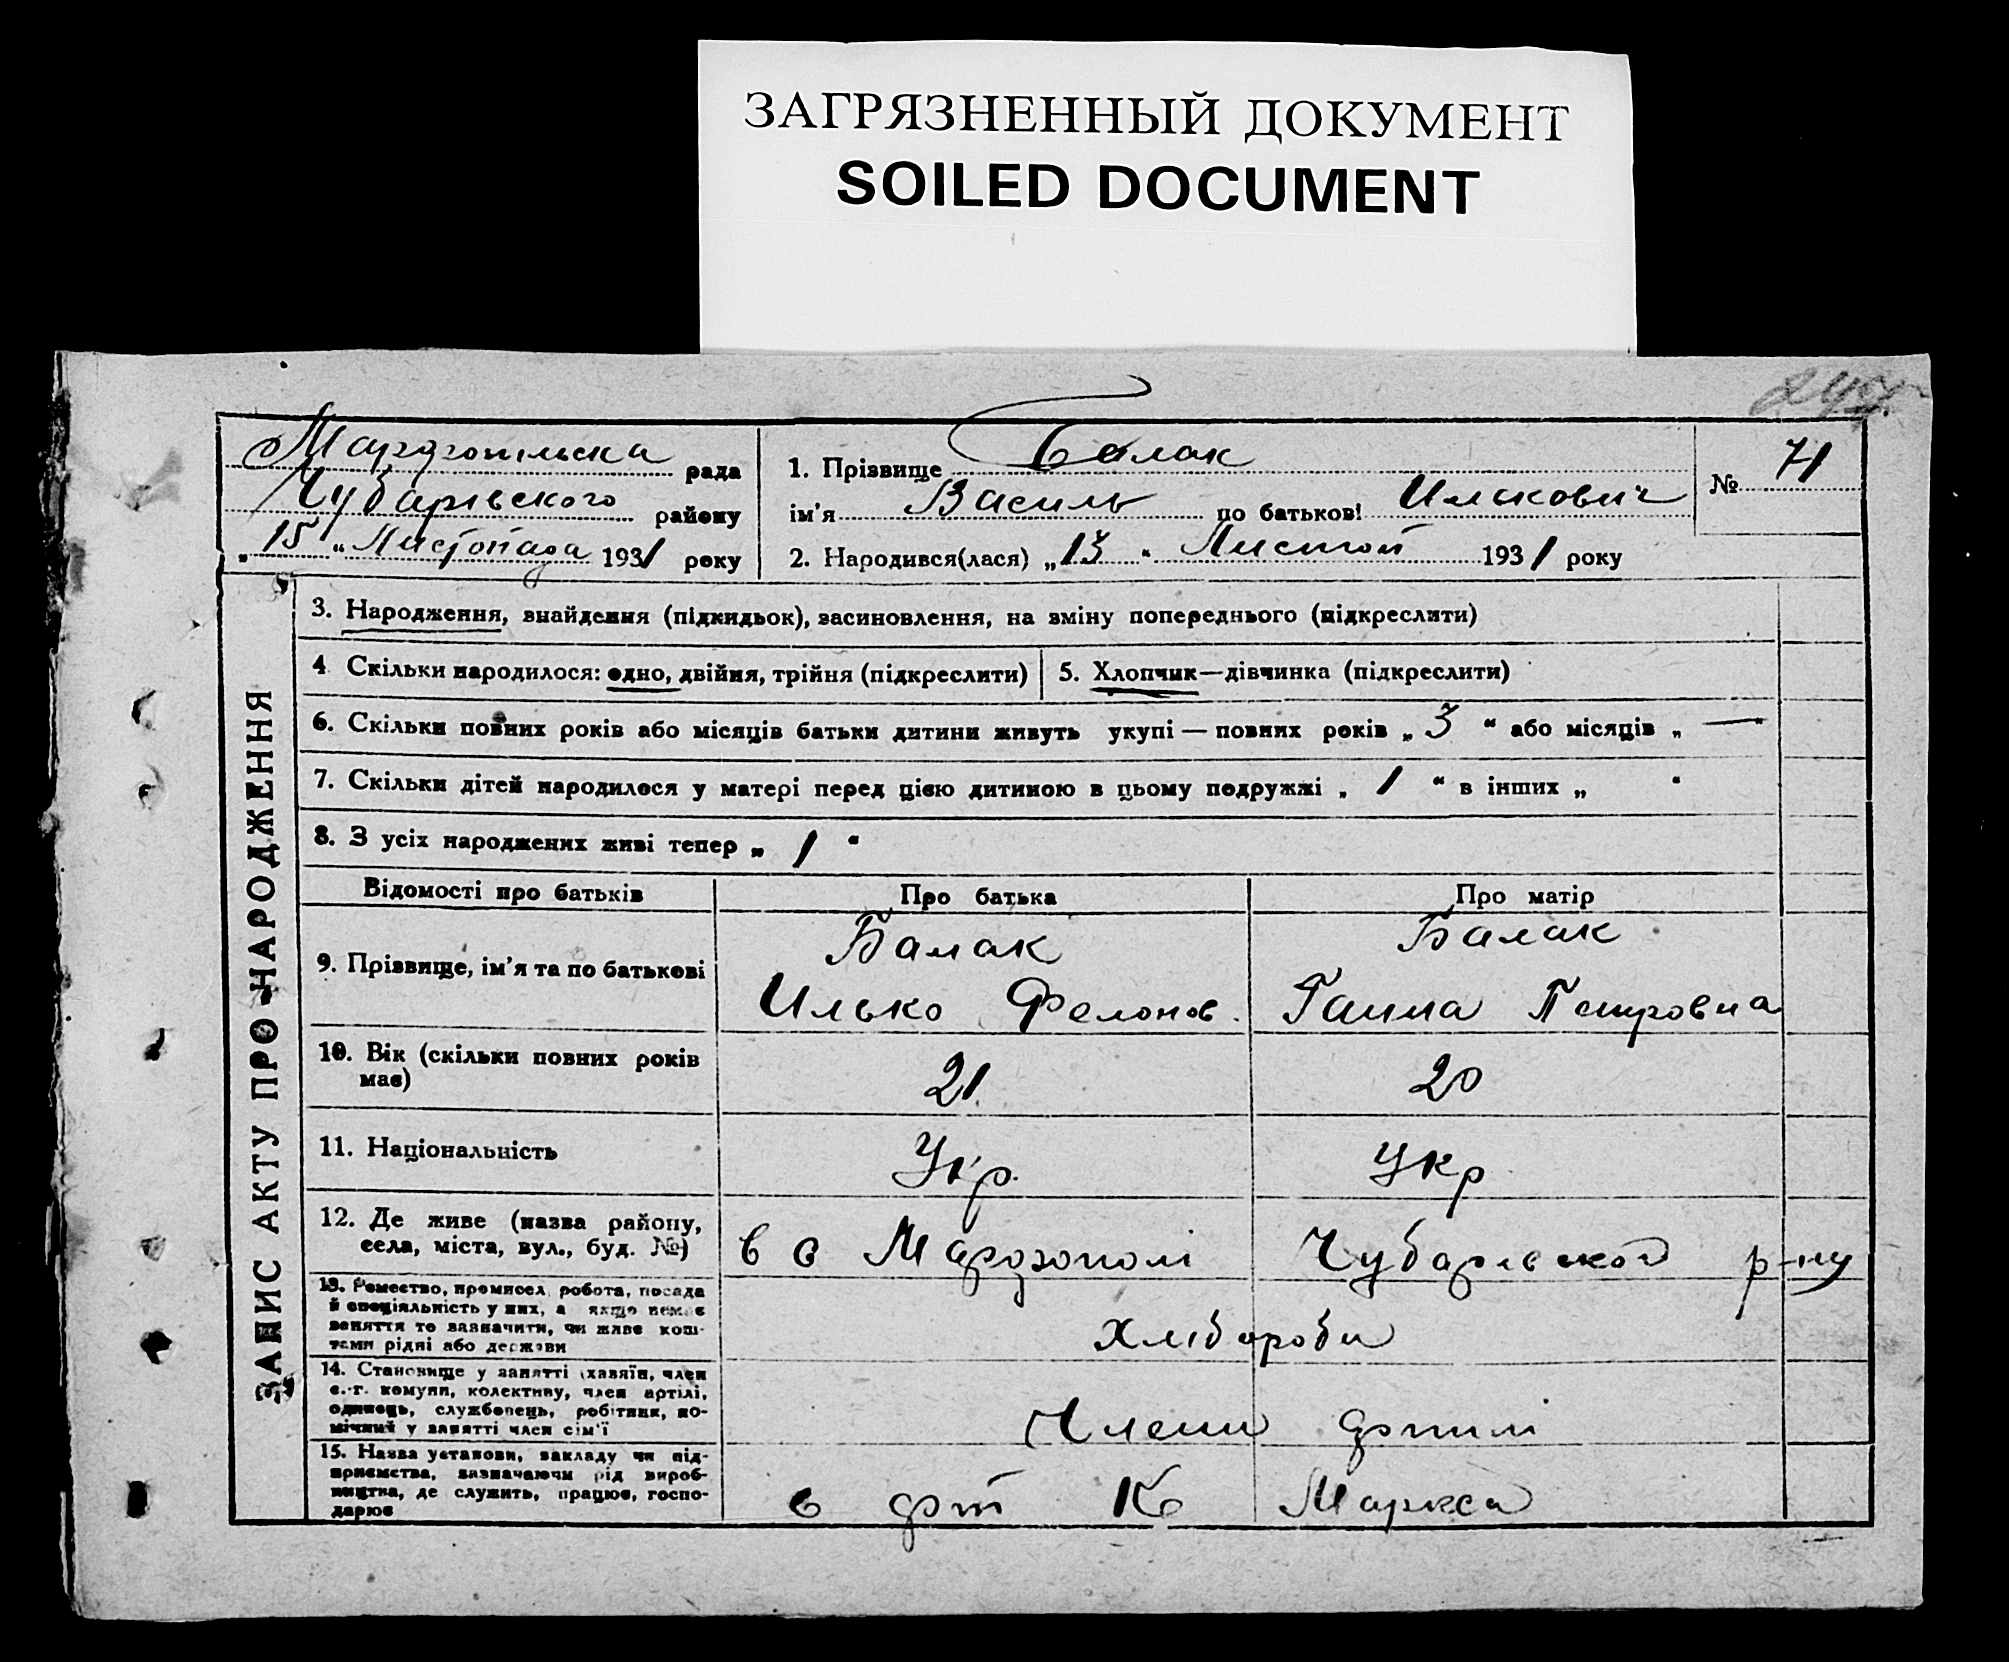 ЗАГРЯЗНЕННЫЙ ДОКУМЕНТ
SOILED DOCUMENT
Марфопільска рада
Чубарівського району
„15“ Листопада 1931 року
1. Прізвище Балак
ім'я Василь по батькові Илькович
2. Народився(лася) „13“ Листоп 1931 року
№ 71
ЗАПИС АКТУ ПРО НАРОДЖЕННЯ
3. Народження, знайдення (підкидьок), засиновлення, на зміну попереднього (підкреслити)
4 Скільки народилося: одно, двійня, трійня (підкреслити)
5. Хлопчик—дівчинка (підкреслити)
6. Скільки повних років або місяців батьки дитини живуть укупі — повних років „ 3 “ або місяців „ — “
7. Скільки дітей народилося у матері перед цією дитиною в цьому подружжі „ 1 “ в інших „ “
8. З усіх народжених живі тепер „ 1 “
Відомості про батьків Про батька Про матір
9. Прізвище, ім'я та по батькові
Балак
Илько Фелонов.
Балак
Ганна Петровна
10. Вік (скільки повних років
має)
21.
20
11. Національність
Укр.
Укр
12. Де живе (назва району,
села, міста, вул., буд. №)
в с Марфополі Чубарівского р-ну
13. Ремество, промисел, робота, посада
й спеціяльність у них, а якщо немає
заняття то зазначити, чи живе кош-
тами рідні або держави
Хлібороби
14. Становище у занятті (хазяїн, член
с.-г. комуни, колективу, член артілі,
одинець, службовець, робітник, по-
мічний у занятті член сім'ї
Члени артилі
15. Назва установи, закладу чи під-
приємства, зазначаючи рід вироб-
ництва, де служить, працює, госпо-
дарює
в арт К Маркса